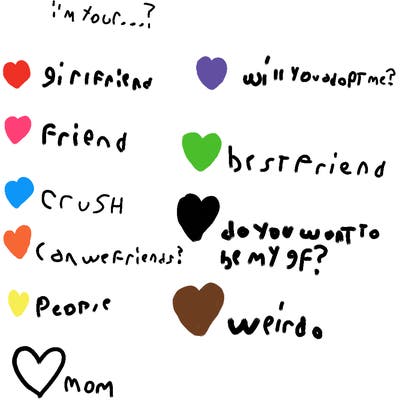 i'm your...?
girlfriend
will you adopt me?
friend
bestfriend
crush
do you want to
be my gf?
can we friends?
people
weirdo
mom